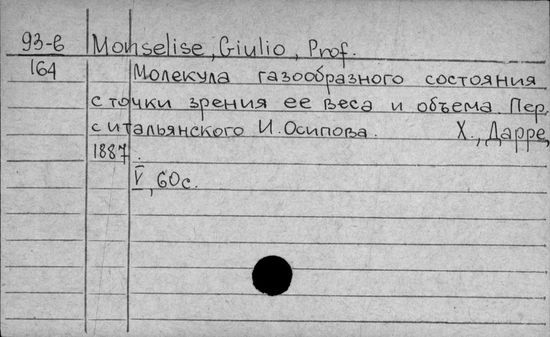 93-6 Monselise, Giulio, Prof.
164 Молекула газообразного состояния
с точки зрения ее веса и объема. Пер.
с итальянского И. Осипова. Х., Дарре,
1887.
V, 60с.